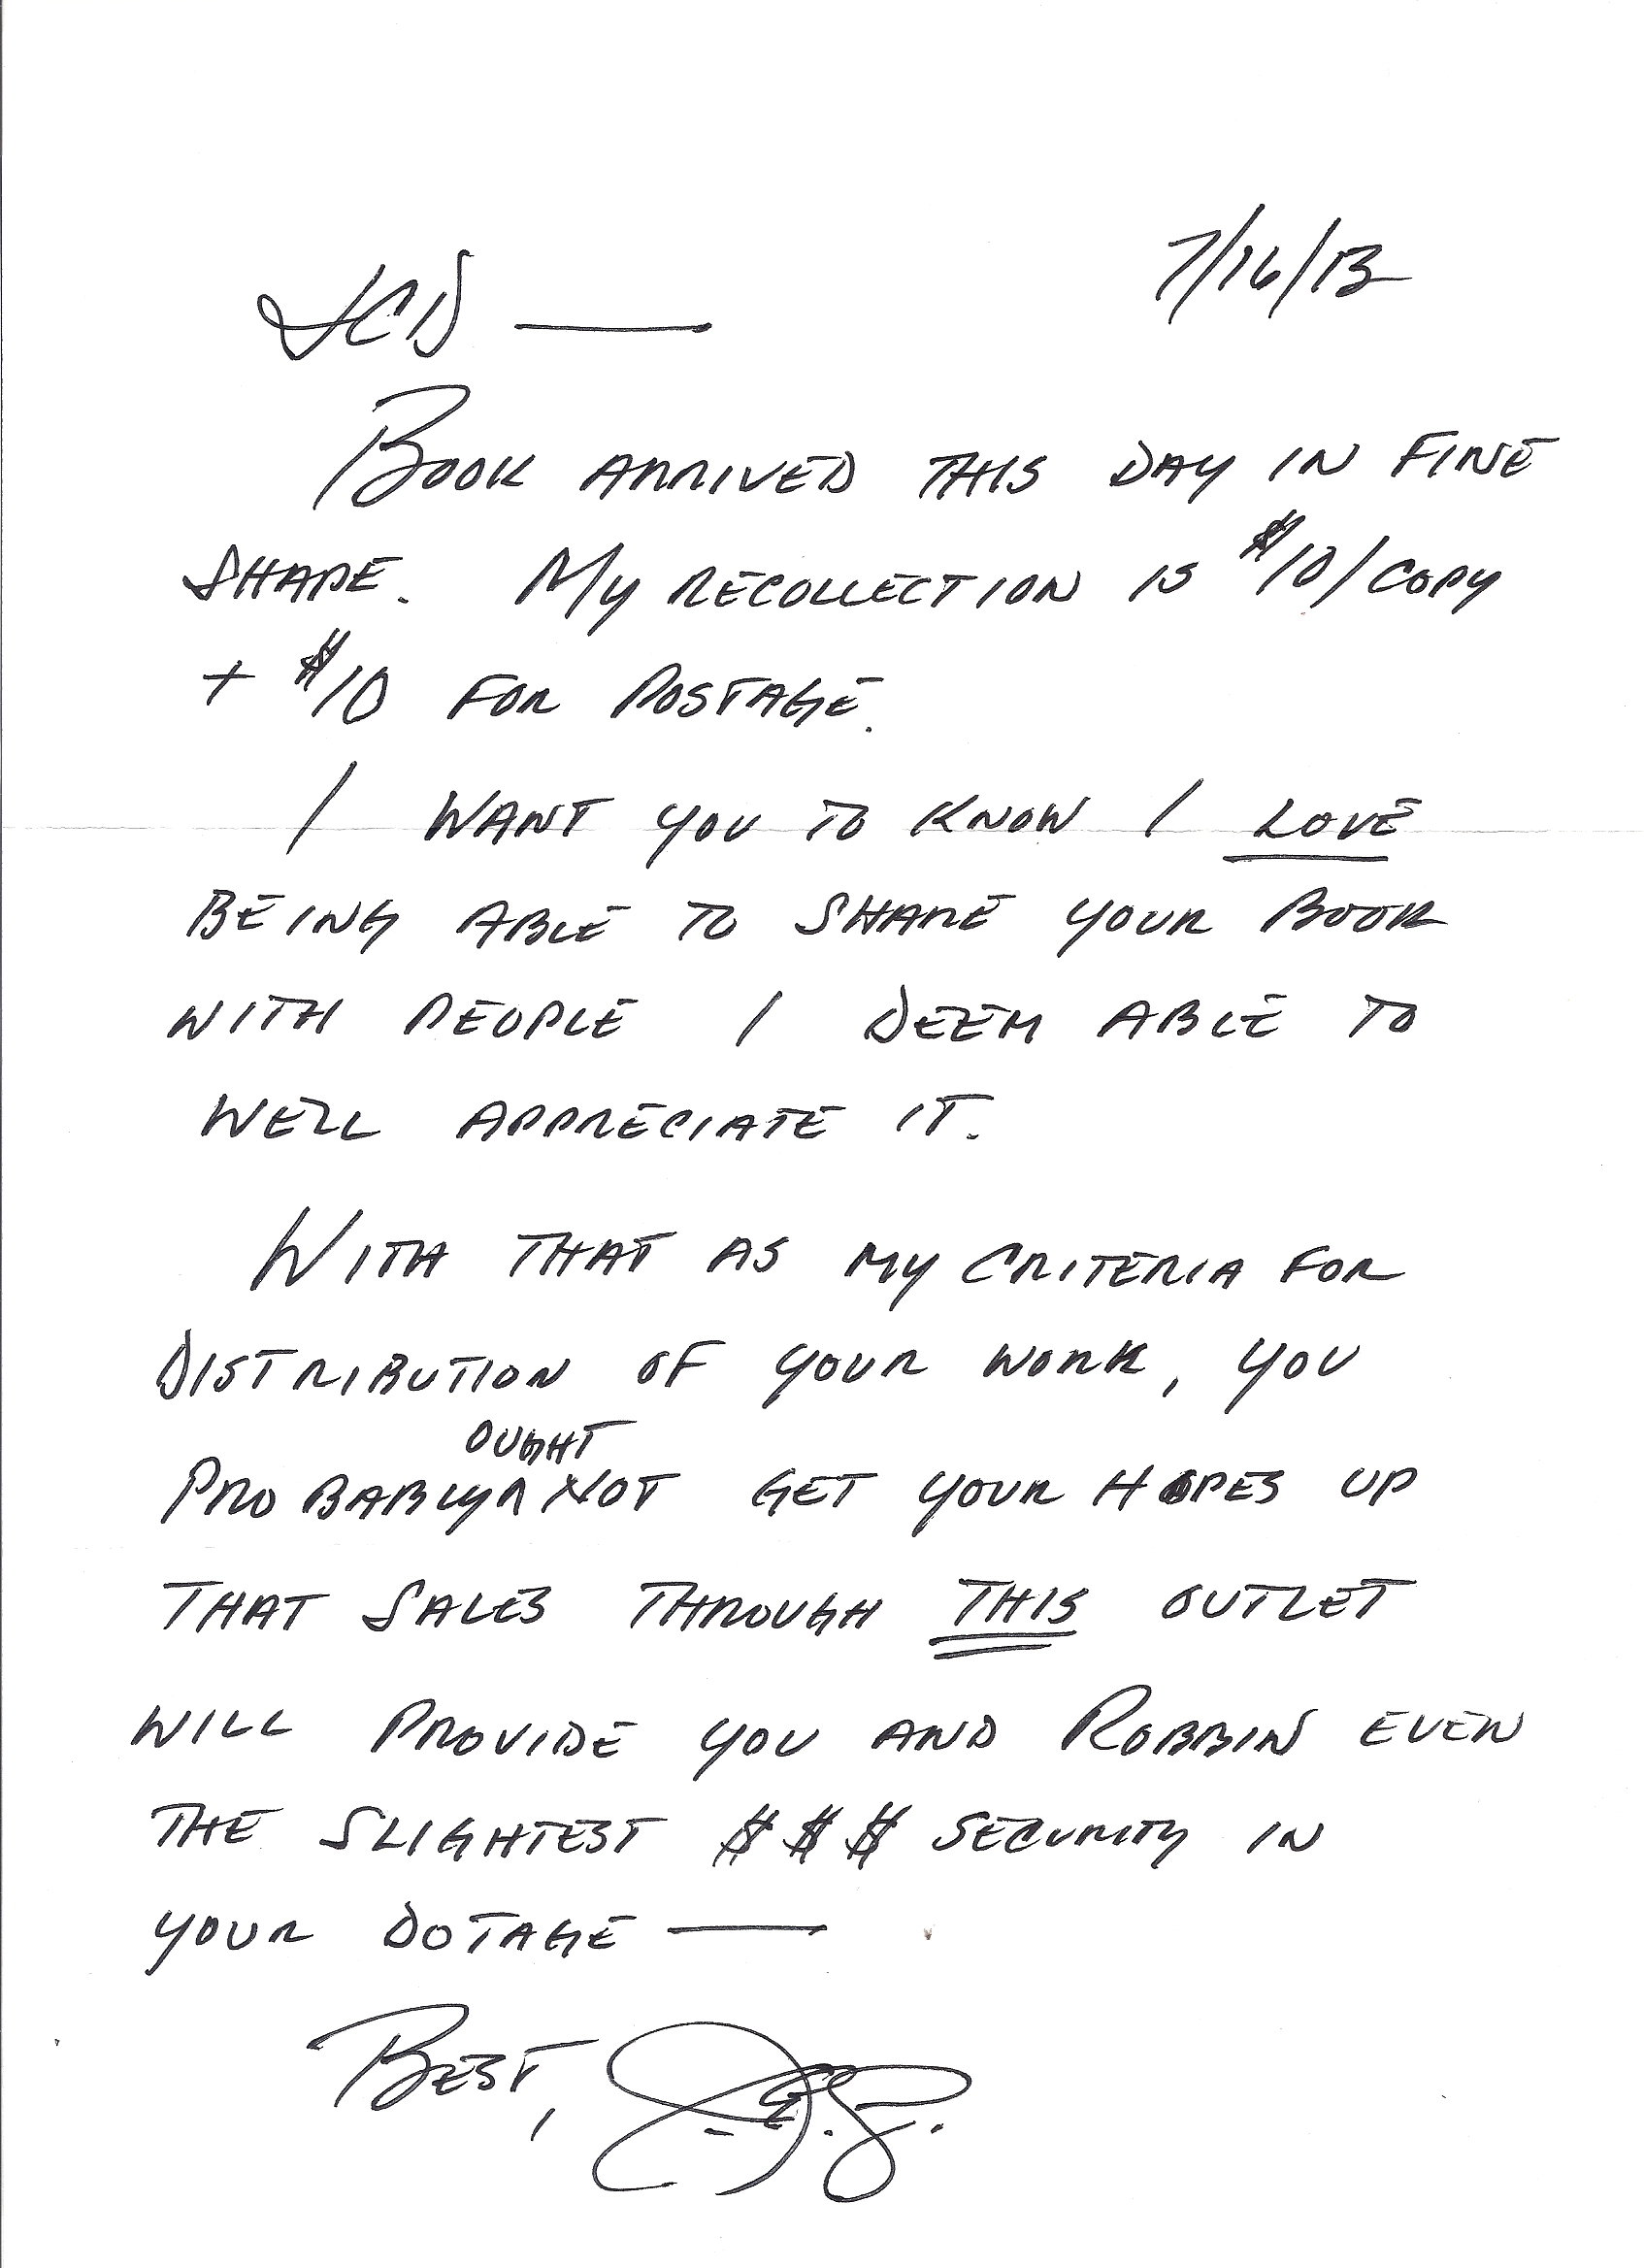 JCD —
7/16/13
BOOK ARRIVED THIS DAY IN FINE
SHAPE. MY RECOLLECTION IS $10/COPY
+ $10 FOR POSTAGE.
I WANT YOU TO KNOW I LOVE
BEING ABLE TO SHARE YOUR BOOK
WITH PEOPLE I DEEM ABLE TO
WELL APPRECIATE IT.
WITH THAT AS MY CRITERIA FOR
DISTRIBUTION OF YOUR WORK, YOU
OUGHT
PROBABLY ^ NOT GET YOUR HOPES UP
THAT SALES THROUGH THIS OUTLET
WILL PROVIDE YOU AND ROBBIN EVEN
THE SLIGHTEST $$$ SECURITY IN
YOUR DOTAGE —
BEST,